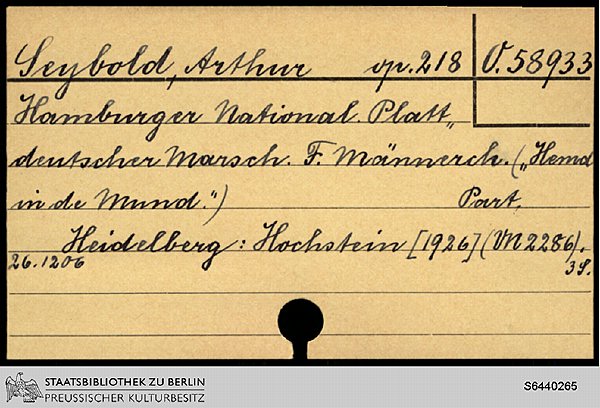 Seybold, Arthur op. 218 O. 58933
Hamburger National. Platt„
deutscher Marsch. F. Männerch. („Hemd
in de Mund.“) Part.
Heidelberg: Hochstein [1926] (M 2286).
26.1206 3 S.
STAATSBIBLIOTHEK ZU BERLIN
PREUSSISCHER KULTURBESITZ
S6440265